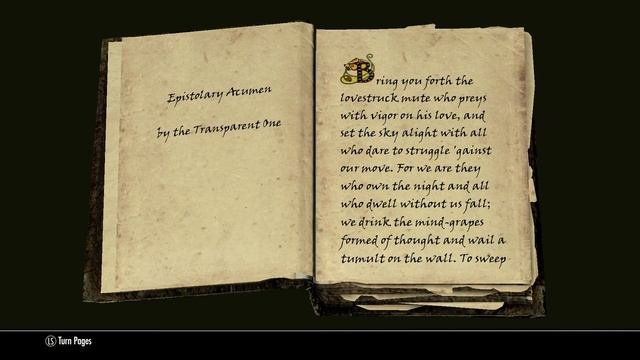 Epistolary Acumen
by the Transparent One
Bring you forth the
lovestruck mute who preys
with vigor on his love, and
set the sky alight with all
who dare to struggle 'gainst
our move. For we are they
who own the night and all
who dwell without us fall;
we drink the mind-grapes
formed of thought and wail a
tumult on the wall. To sweep
LS Turn Pages